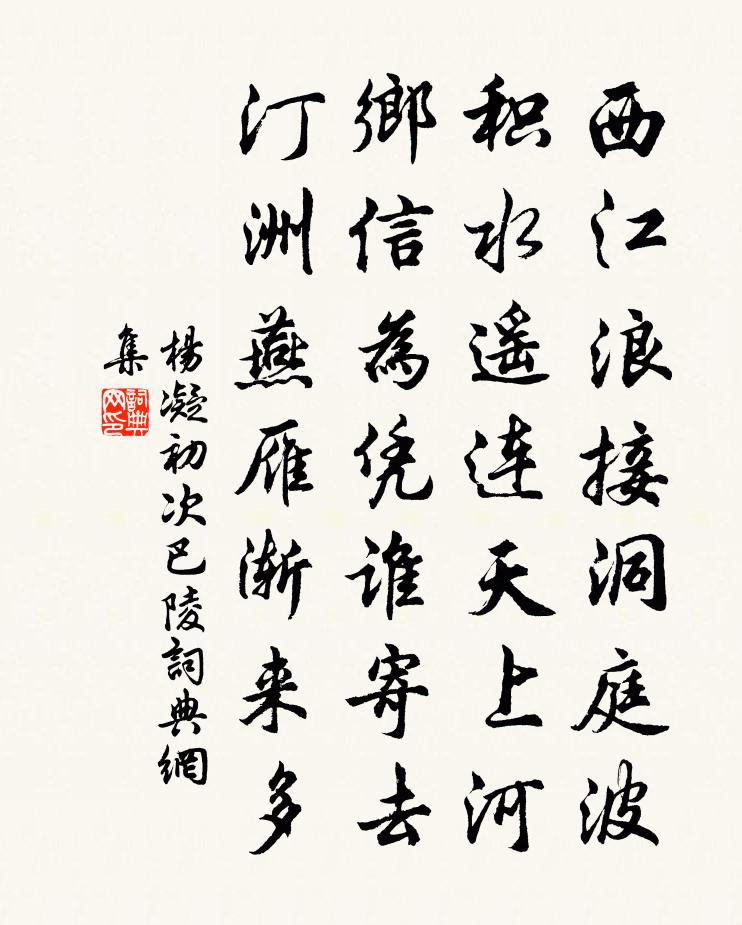 西江浪接洞庭波
积水遥连天上河
鄉信為凭谁寄去
汀洲燕雁渐来多
楊凝初次巴陵詞典網
集
詞典
网印